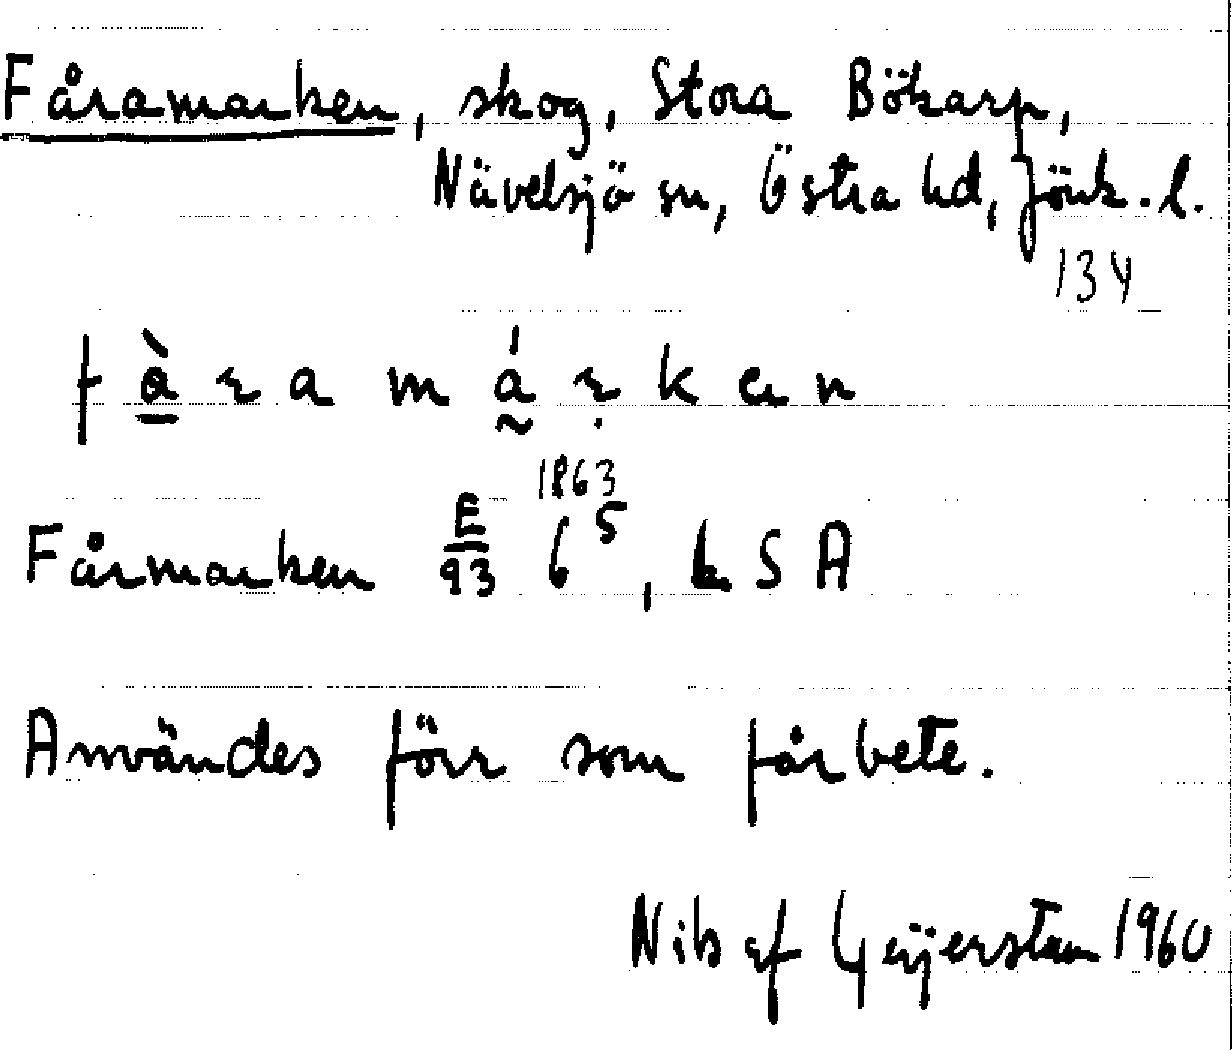 Fåramarken, skog, Stora Bökarp,
Nävelsjö sn, Östra hd, Jönk. l.
134
f à ɾ a m á ɾ̣ k e n
1863
Fårmarken E/93 6⁵, LSA
Användes förr som fårbete.
Nils af Geijerstam 1960